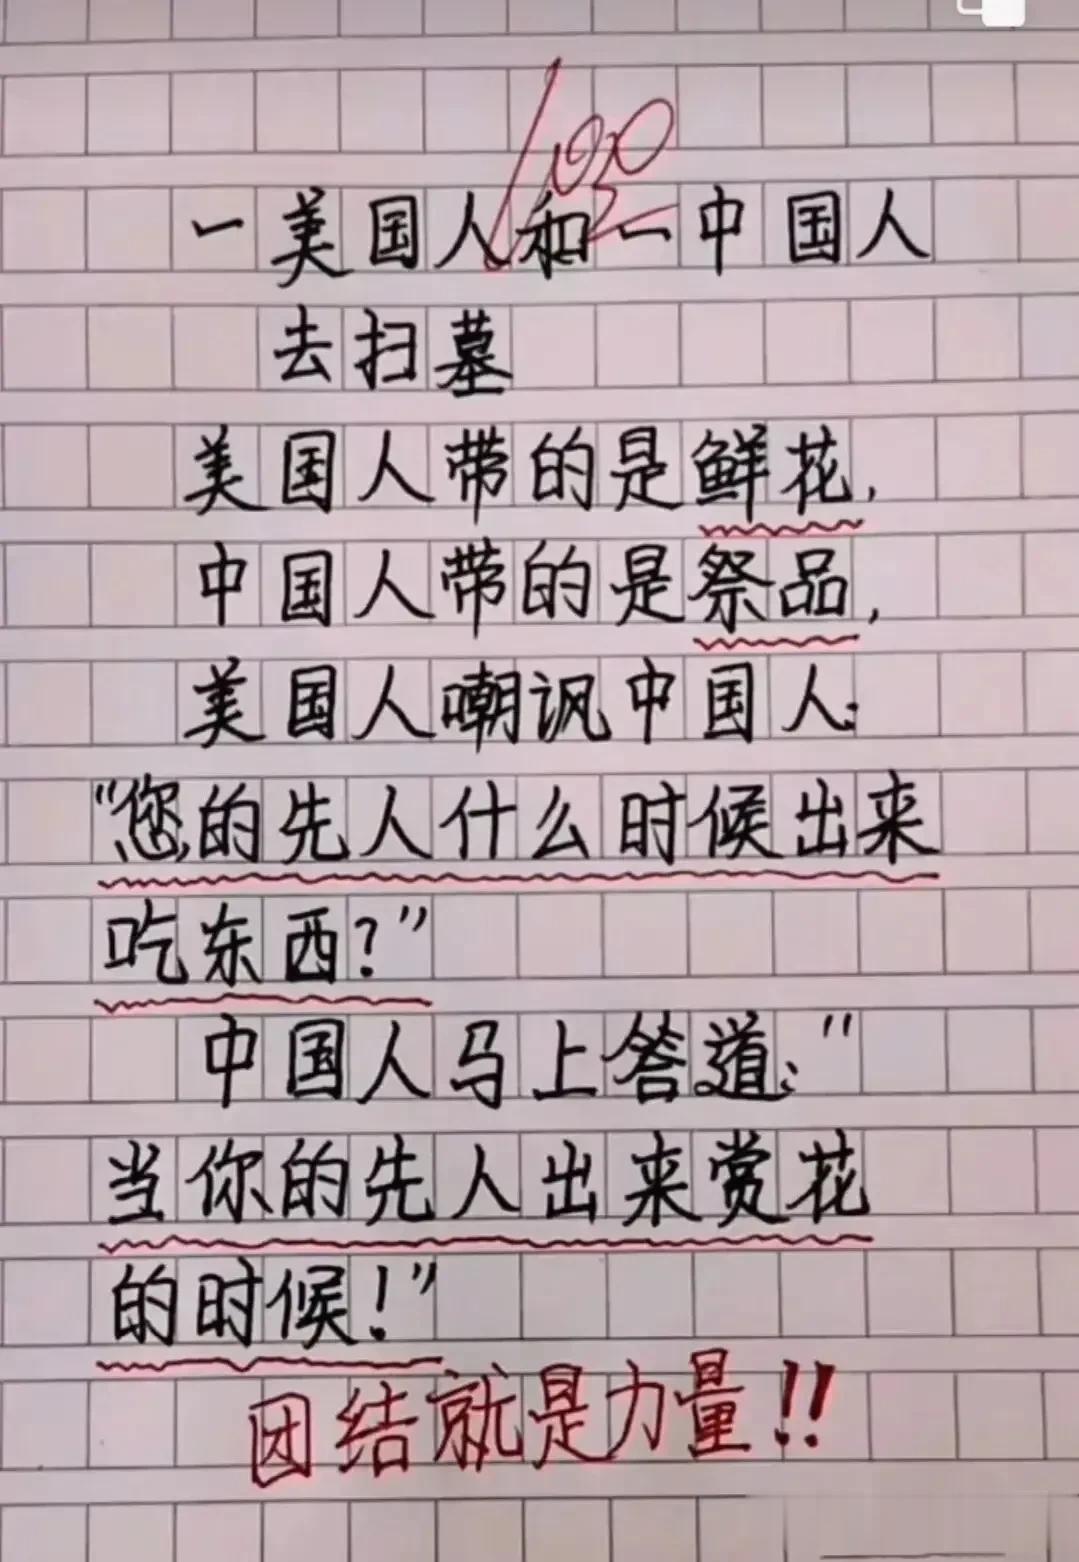 100
一美国人和一中国人
去扫墓
美国人带的是鲜花,
中国人带的是祭品,
美国人嘲讽中国人:
“您的先人什么时候出来
吃东西?”
中国人马上答道:“
当你的先人出来赏花
的时候!”
团结就是力量!!